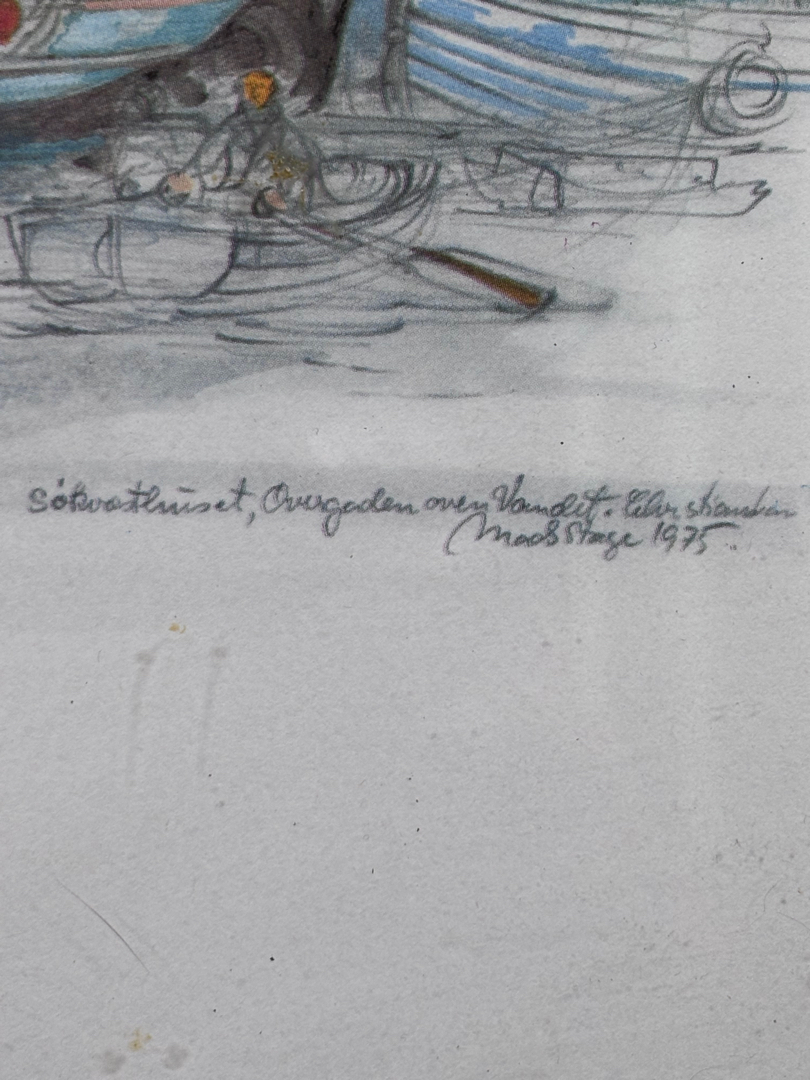 Søkvæsthuset, Overgaden oven Vandet. Christianshavn
Mads Stage 1975